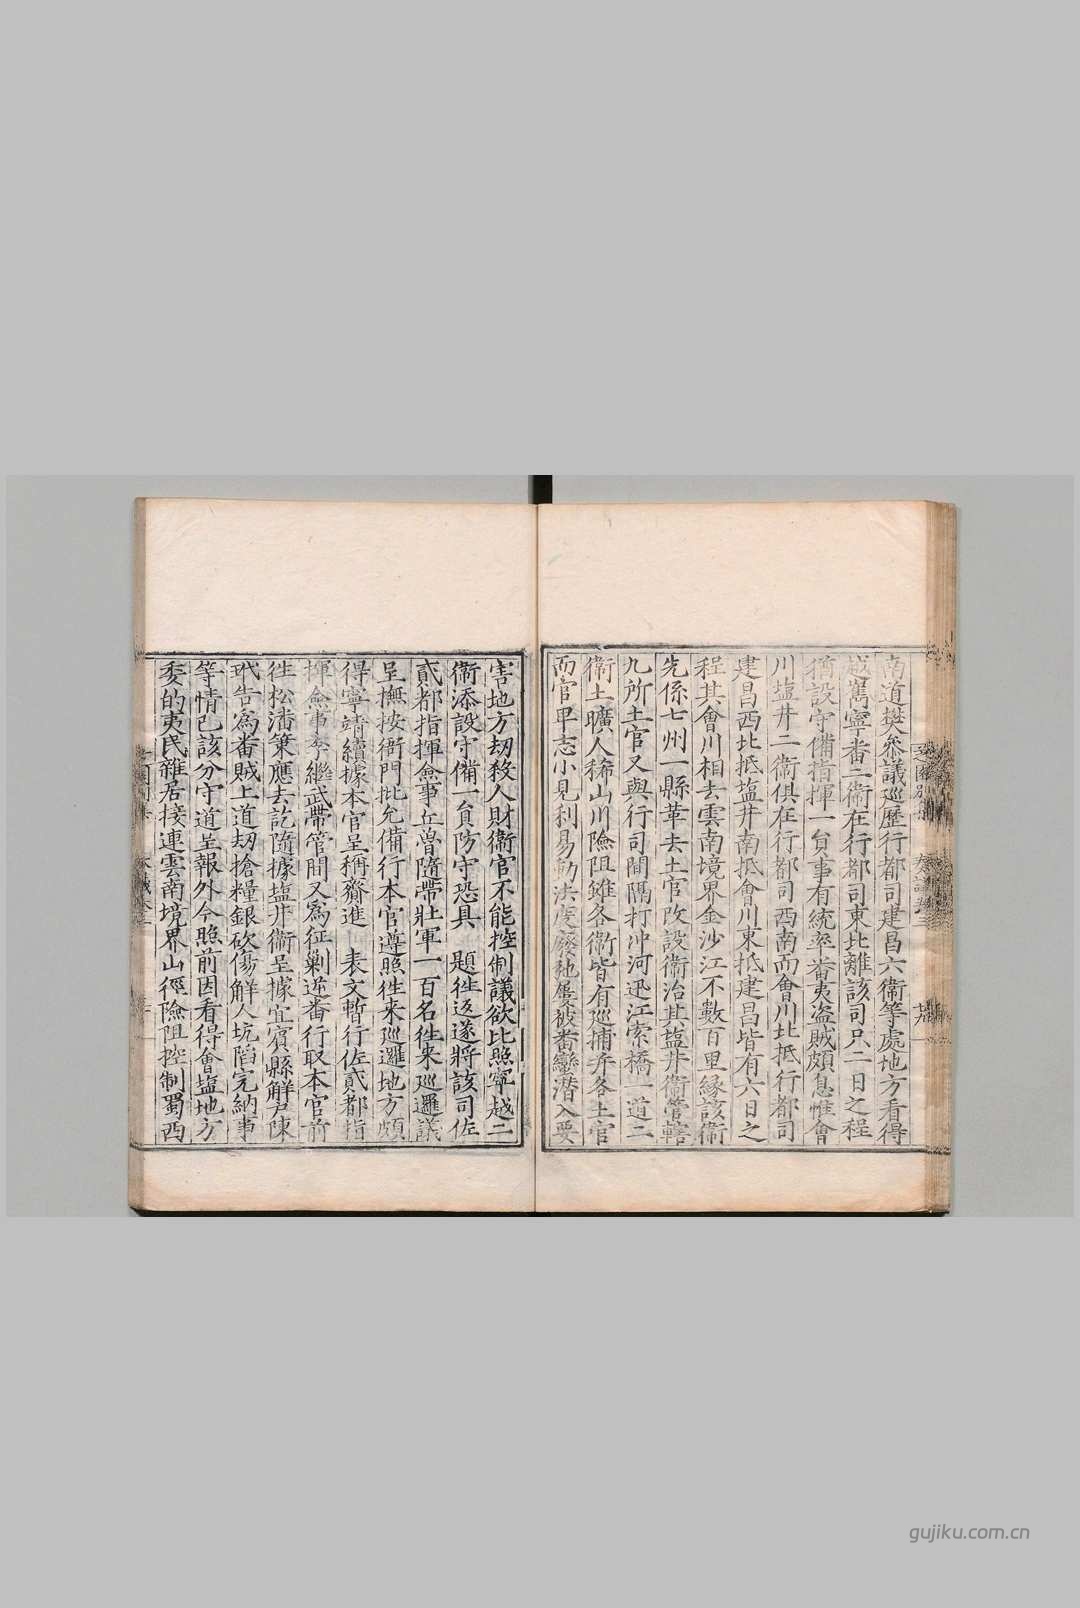 南道樊叅議巡歷行都司建昌六衞等處地方看得
越嶲寧番二衞在行都司東北離該司只二日之程
猶設守備指揮一員事有統率畨夷盗賊頗息惟會
川塩井二衞俱在行都司西南而會川北抵行都司
建昌西北抵塩井南抵會川東抵建昌皆有六日之
程其會川相去雲南境界金沙江不數百里縁該衞
先係七州一縣革去土官改設衞治其塩井衞管轄
九所土官又與行司間隔打冲河迅江索橋一道二
衞土曠人稀山川險阻雖各衞皆有巡捕并各土官
而官卑志小見利易動法度廢弛屢被畨蠻潜入要
害地方刼殺人財衞官不能控制議欲比照寧越二
衞添設守備一員防守恐具 題徃返遂將該司佐
貳都指揮僉事丘曾隨帶壯軍一百名徃来巡邏議
呈撫按衙門批允備行本官遵照徃来巡邏地方頗
得寧靖續據本官呈稱賫進 表文暫行佐貳都指
揮僉事李繼武帶管間又爲征勦逆番行取本官前
徃松潘策應去訖隨據塩井衞呈據宜賓縣解戸陳
玳告爲畨賊上道刼搶糧銀砍傷解人坑陷完納事
等情已該分守道呈報外今照前因看得會塩地方
委的夷民雜居接連雲南境界山徑險阻控制蜀西
gujiku.com.cn